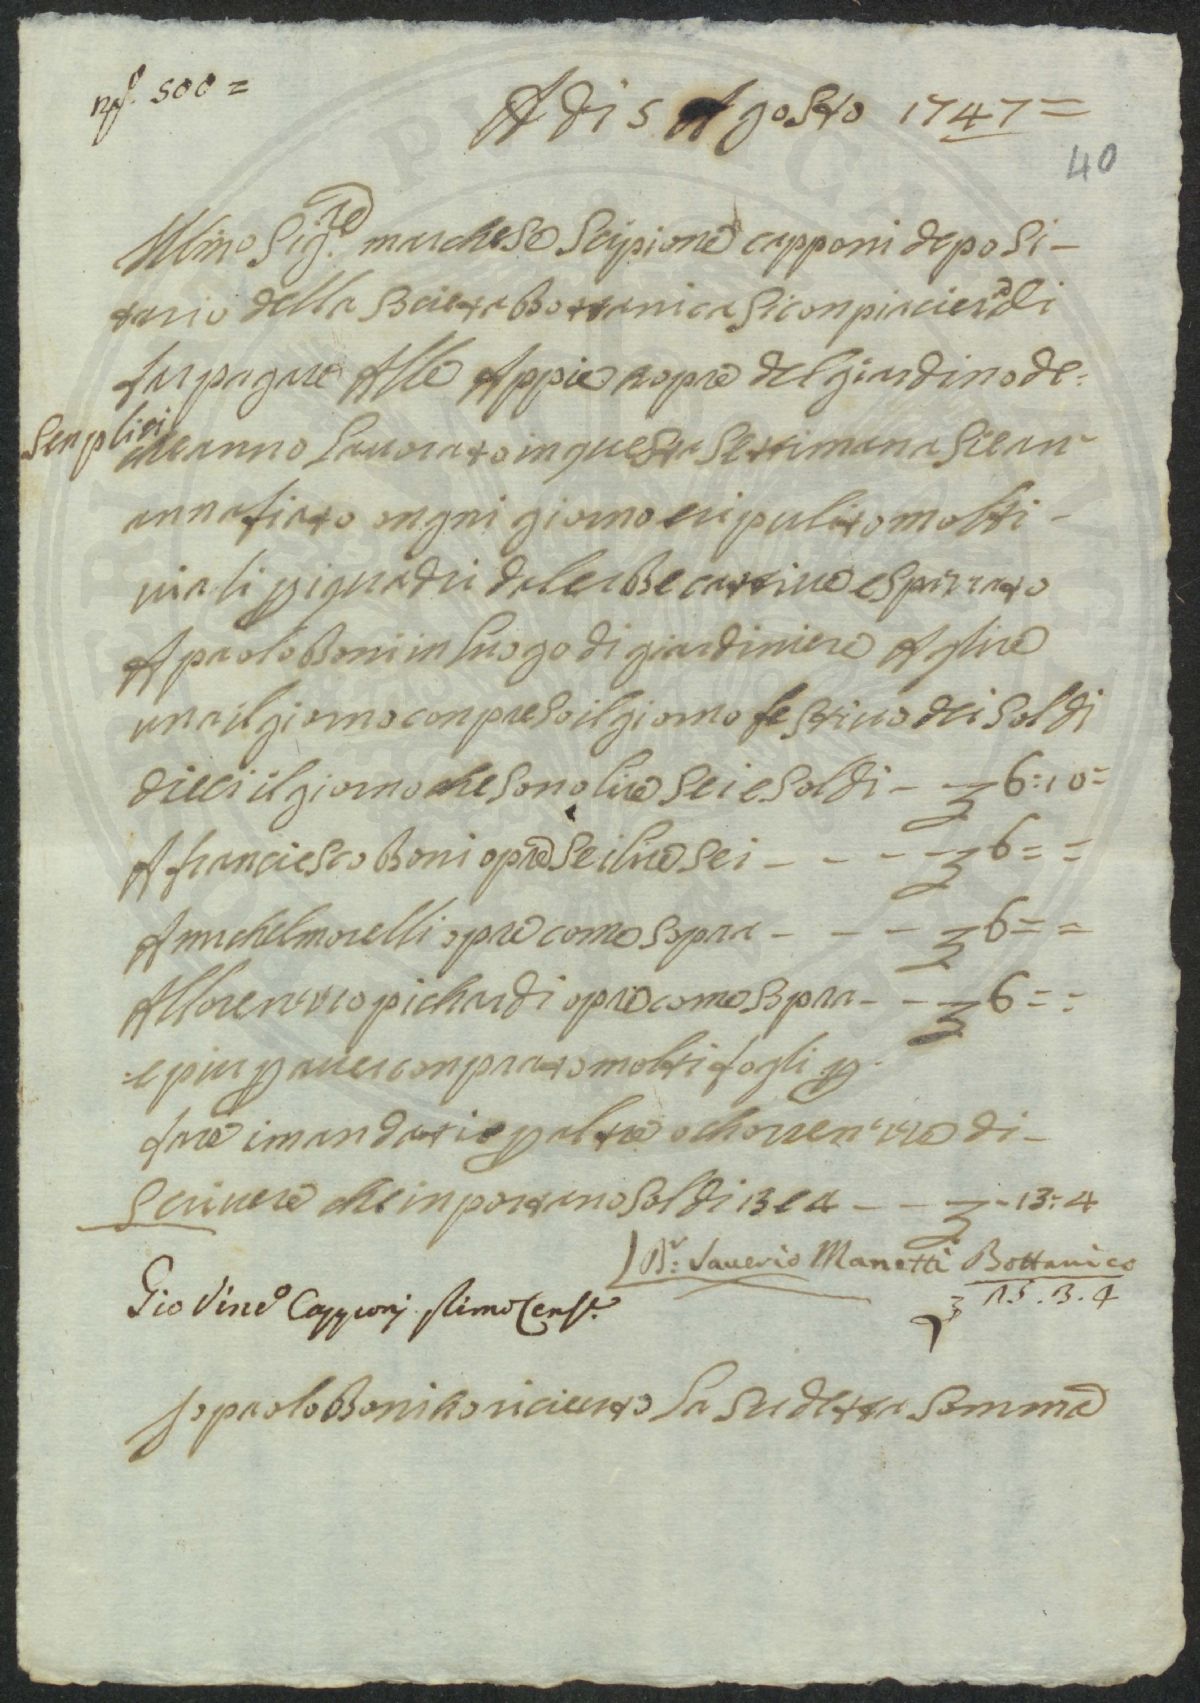 nº. 500 =
A di 5 Agosto 1747 =
40
Illmo Sig.re marchese Scipione capponi deposi-
tario della Scieta Bottanica Si conpiacierà di
far pagare Alle Appie nopre del giardino de:
Senplici
che anno Lauorato in questa Settimana Sie an
annafiato ongni giorno e ripulito molti -
uiali p i quadri dale erBe cattiue e spazzato
A paolo Boni in luogo di giardiniere A glire
una il giorno conpreso il giorno festiuo dei Soldi
dieci il giorno che sono lire Sei e Soldi - - 6:10=
A franciesco Boni opre Sei lire Sei - - - - 6 = =
A michel morelli opre come Sopra - - - 6 = =
A llorenzzo pichardi opre come Sopra - - 6 = =
e piu p auer conprato molti fogli p
fare i mandati e p altre ochorrenzze di -
Scriuere che inportano Soldi 13 e 4 - - - 13:4
D.r: Sauerio Manetti Bottanico
25.3.4
Gio Vinc.o Capponj Primo Cens.e
Io paolo Boni ho riceuuto La Sudetta Somma